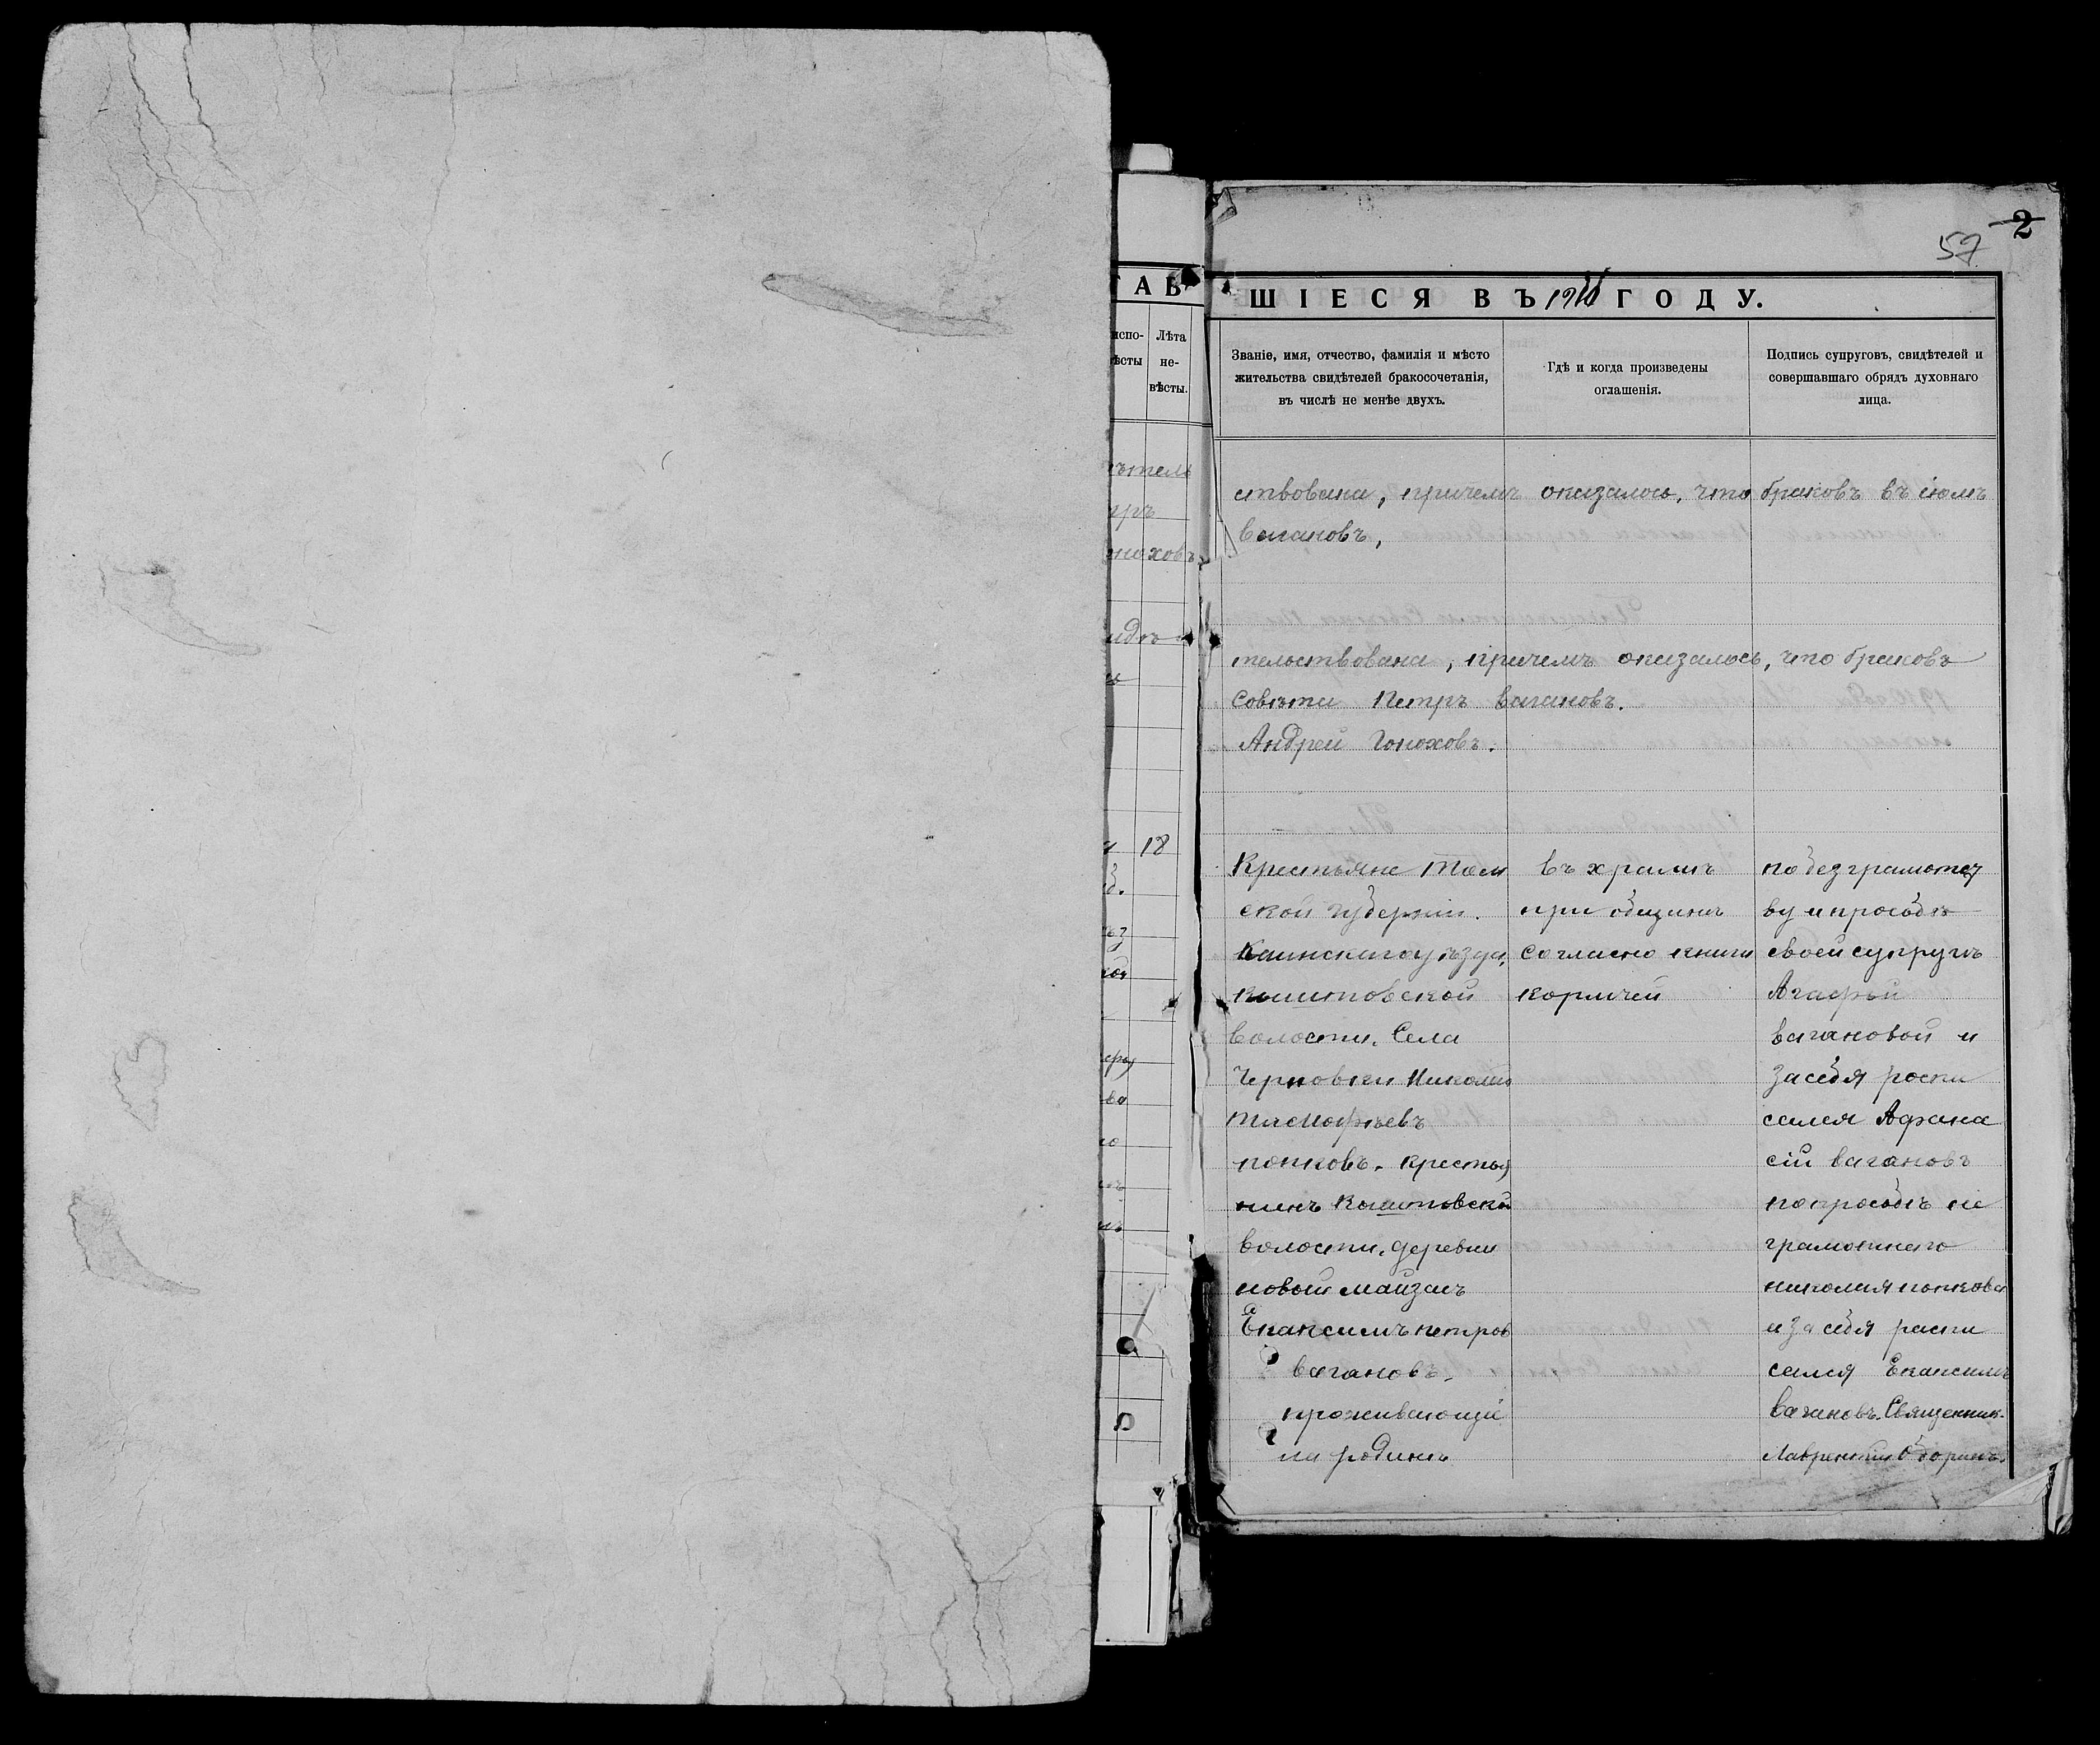 2
57
ТАВ
ШІЕСЯ ВЪ 1910 ГОДУ.
испо-
вѣсты
Лѣта
не-
вѣсты.
Званіе, имя, отчество, фамилія и мѣсто
жительства свидѣтелей бракосочетанія,
въ числѣ не менѣе двухъ.
Гдѣ и когда произведены
оглашенія.
Подпись супруговъ, свидѣтелей и
совершавшаго обрядъ духовнаго
лица.
18
ствована, причемъ оказалось, что браковъ въ іюлѣ
Вагановъ,
тельствована, причемъ оказалось, что браковъ
Совѣта Петръ Вагановъ.
Андрей Гоноховъ.
Крестьяне Том
ской губерніи.
Каинскагоуѣзда,
Кыштовской
волости. Села
Черновки Николай
Тимофѣевъ
попковъ. крестья
нинъ Кыштовской
волости. деревни
новой майзасъ
Екансимъ петров
вагановъ.
проживающій
на родинѣ
въ храмѣ
при общинѣ
согласно книги
кормчей
по безграмотст
ву и просьбѣ
своей супругѣ
Агафьи
вагановой и
за себя роспи
сался Афана
сій вагановъ
попросьбѣ не
грамотнаго
николая попкова
и за себя распи
сался Екансимъ
вагановъ. Священник.
Лаврентій Оборинъ.